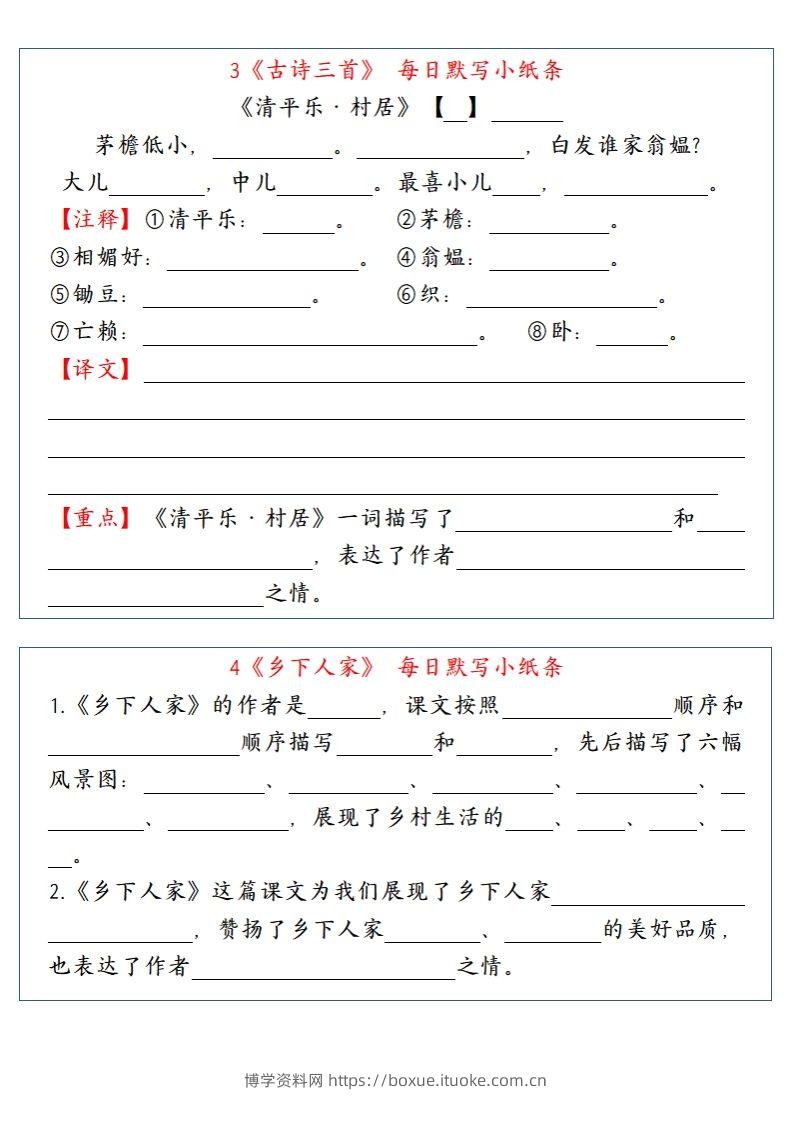 3《古诗三首》 每日默写小纸条
《清平乐·村居》【__】______
茅檐低小，__________。______________，白发谁家翁媪？
大儿________，中儿________。最喜小儿____，____________。
【注释】①清平乐：______。 ②茅檐：__________。
③相媚好：________________。 ④翁媪：__________。
⑤锄豆：______________。 ⑥织：________________。
⑦亡赖：____________________________。 ⑧卧：______。
【译文】__________________________________________________
__________________________________________________________
__________________________________________________________
________________________________________________________
【重点】《清平乐·村居》一词描写了__________________和____
______________________，表达了作者________________________
__________________之情。
4《乡下人家》 每日默写小纸条
1.《乡下人家》的作者是______，课文按照______________顺序和
________________顺序描写________和________，先后描写了六幅
风景图：__________、__________、__________、__________、__
________、__________，展现了乡村生活的____、____、____、__
__。
2.《乡下人家》这篇课文为我们展现了乡下人家________________
____________，赞扬了乡下人家________、________的美好品质，
也表达了作者______________________之情。
博学资料网 https://boxue.ituoke.com.cn